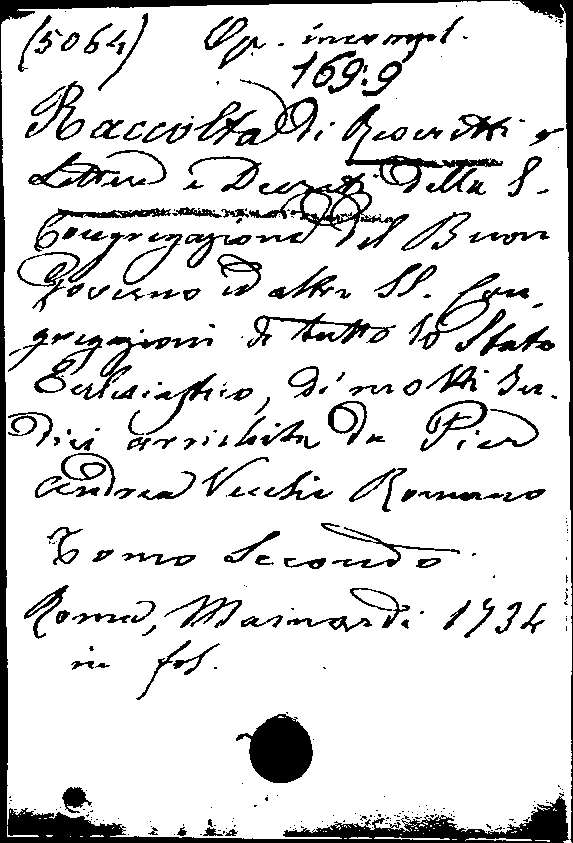 (5064) Op. incompl.
169.9
Raccolta di Rescritti e
Lettere e Decreti della S.
Congregazione del Buon
Governo ed altre SS. Con,
gregazioni di tutto lo Stato
Ecclesiastico, di molti In,
dici arrichita da Pier
Andrea Vecchi Romano
Tomo Secondo
Roma, Mainardi 1734
in fol.